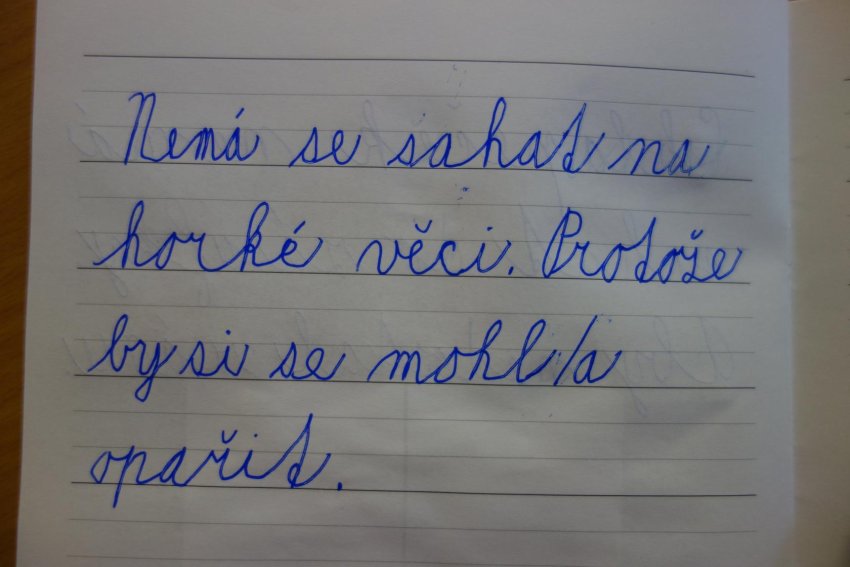 Nemá se sahat na
horké věci. Protože
by si se mohl/a
opařit.